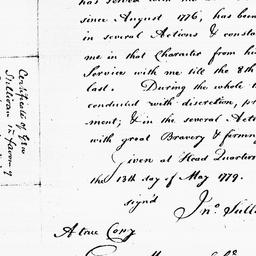 has served with me
since August 1776, has been
in several Actions & consta
me in that Character from his
Service with me till the 8th
last. During the whole t
conducted with discretion, pr
ment; & in the several Acti
with great Bravery & firmn
Given at Head Quarters
the 13th day of May 1779.
signd
Jno. Sull
A true Copy
Certificate of Gen
Sullivan in favor of